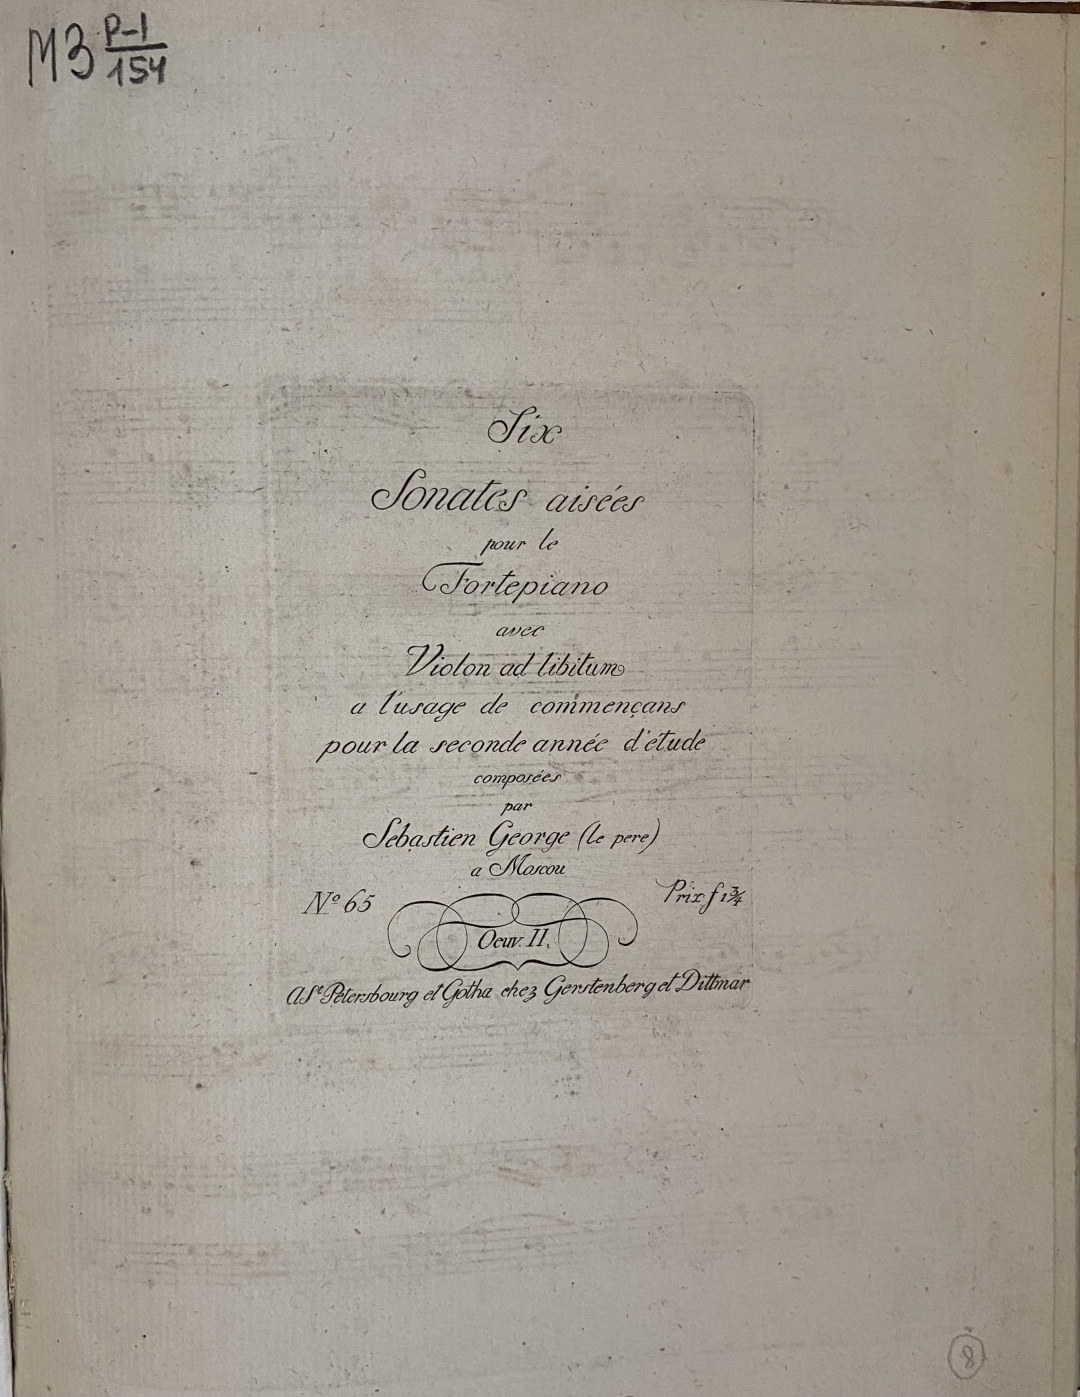 МЗ Р-1
154
Six
Sonates aisées
pour le
Fortepiano
avec
Violon ad libitum
a l'usage de commençans
pour la seconde année d'étude
composées
par
Sebastien George (le pere)
a Moscou
Nº 65
Prix f 1 3/4
Oeuv. II.
a St Petersbourg et Gotha chez Gerstenberg et Dittmar
8